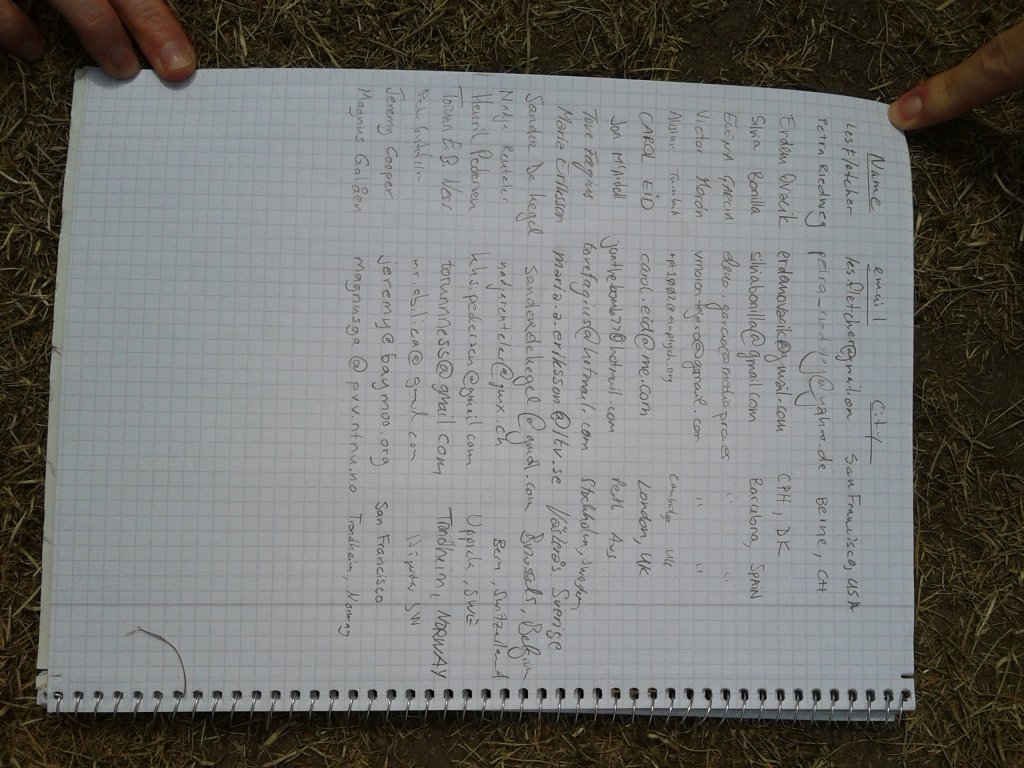 Name email City
Les Fletcher lesfletcher@gmail.com San Francisco, USA
Petra Riedweg petra_riedweg@yahoo.de Berne, CH
Erdem Ovacik erdemovacik@gmail.com CPH, DK
Silvia Bonilla silviabonilla@gmail.com Barcelona, SPAIN
ELENA GARCIA " "
Victor Morón " "
Alistair Cambridge UK
CAROL EID carol.eid@me.com London, UK
Jon McArdell jonthebomb77@hotmail.com Perth Aus
Tove Fagnäs tovefagnas@hotmail.com Stockholm, Sweden,
Maria Eriksson maria.a.eriksson@ltv.se Västerås Sverige
Sander De Kegel sanderdekegel@gmail.com Brussels, Belgium
Nadja Renteler nadjarenteler@gmx.ch Bern, Switzerland
Henrik Pedersen khs.pedersen@gmail.com Uppsala, SWE
Torunn E.B. Ness torunnness@gmail.com Trondheim, NORWAY
@gmail.com
Jeremy Cooper jeremy@baymoo.org San Francisco
Magnus Galåen magnusga@pvv.ntnu.no Trondheim, Norway